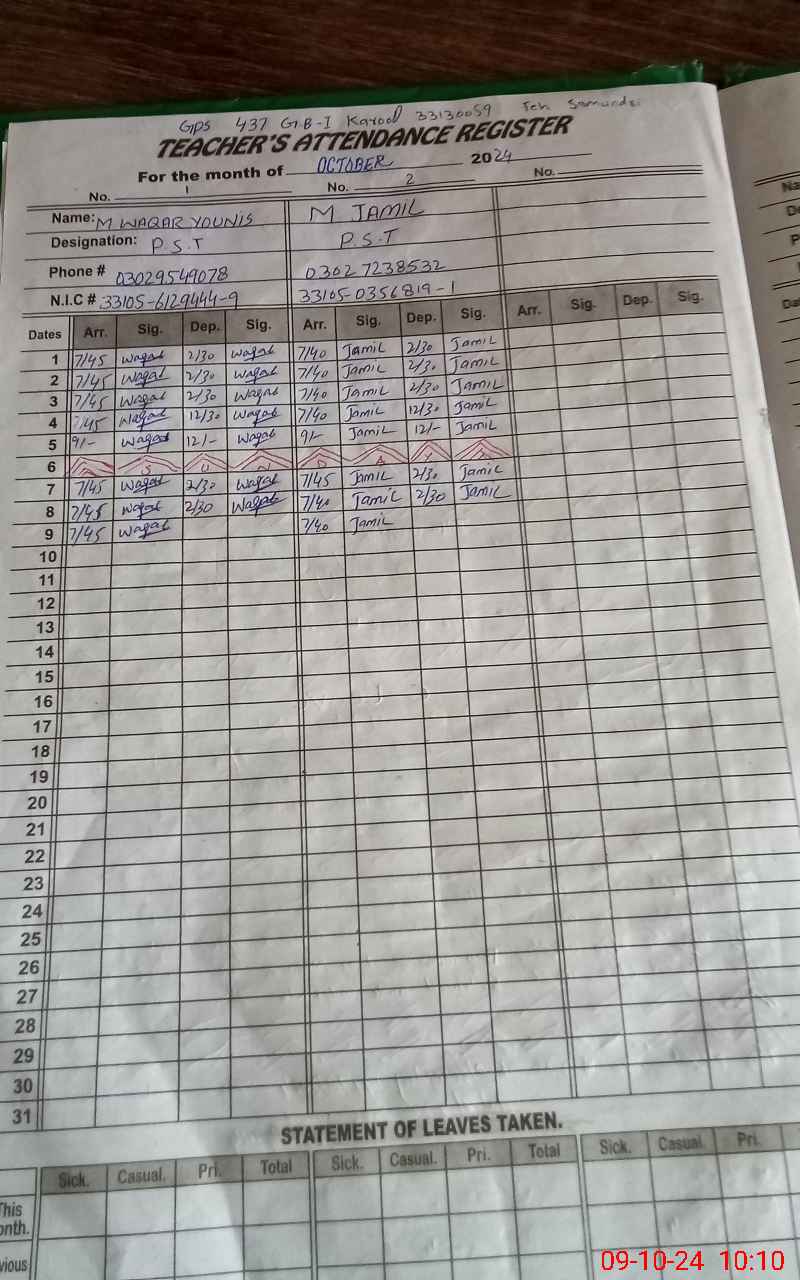 GPS 437 G.B-I Karool 33130059 Teh Samundri
TEACHER'S ATTENDANCE REGISTER
For the month of OCTOBER 2024
No. 1 No. 2 No.
Name: M WAQAR YOUNIS M JAMIL
Designation: P.S.T P.S.T
Phone # 03029549078 03027238532
N.I.C # 33105-6129444-9 33105-0356819-1
Dates Arr. Sig. Dep. Sig. Arr. Sig. Dep. Sig. Arr. Sig. Dep. Sig.
1 7/45 Waqar 2/30 Waqar 7/40 Jamil 2/30 Jamil
2 7/45 Waqar 2/30 Waqar 7/40 Jamil 2/30 Jamil
3 7/45 Waqar 2/30 Waqar 7/40 Jamil 2/30 Jamil
4 7/45 Waqar 12/30 Waqar 7/40 Jamil 12/30 Jamil
5 9/- Waqar 12/- Waqar 9/- Jamil 12/- Jamil
6 S U N D A Y
7 7/45 Waqar 2/30 Waqar 7/45 Jamil 2/30 Jamil
8 7/45 Waqar 2/30 Waqar 7/40 Jamil 2/30 Jamil
9 7/45 Waqar 7/40 Jamil
10
11
12
13
14
15
16
17
18
19
20
21
22
23
24
25
26
27
28
29
30
31
STATEMENT OF LEAVES TAKEN.
Sick. Casual. Pri. Total Sick. Casual. Pri. Total Sick. Casual. Pri.
This
onth.
vious
09-10-24 10:10